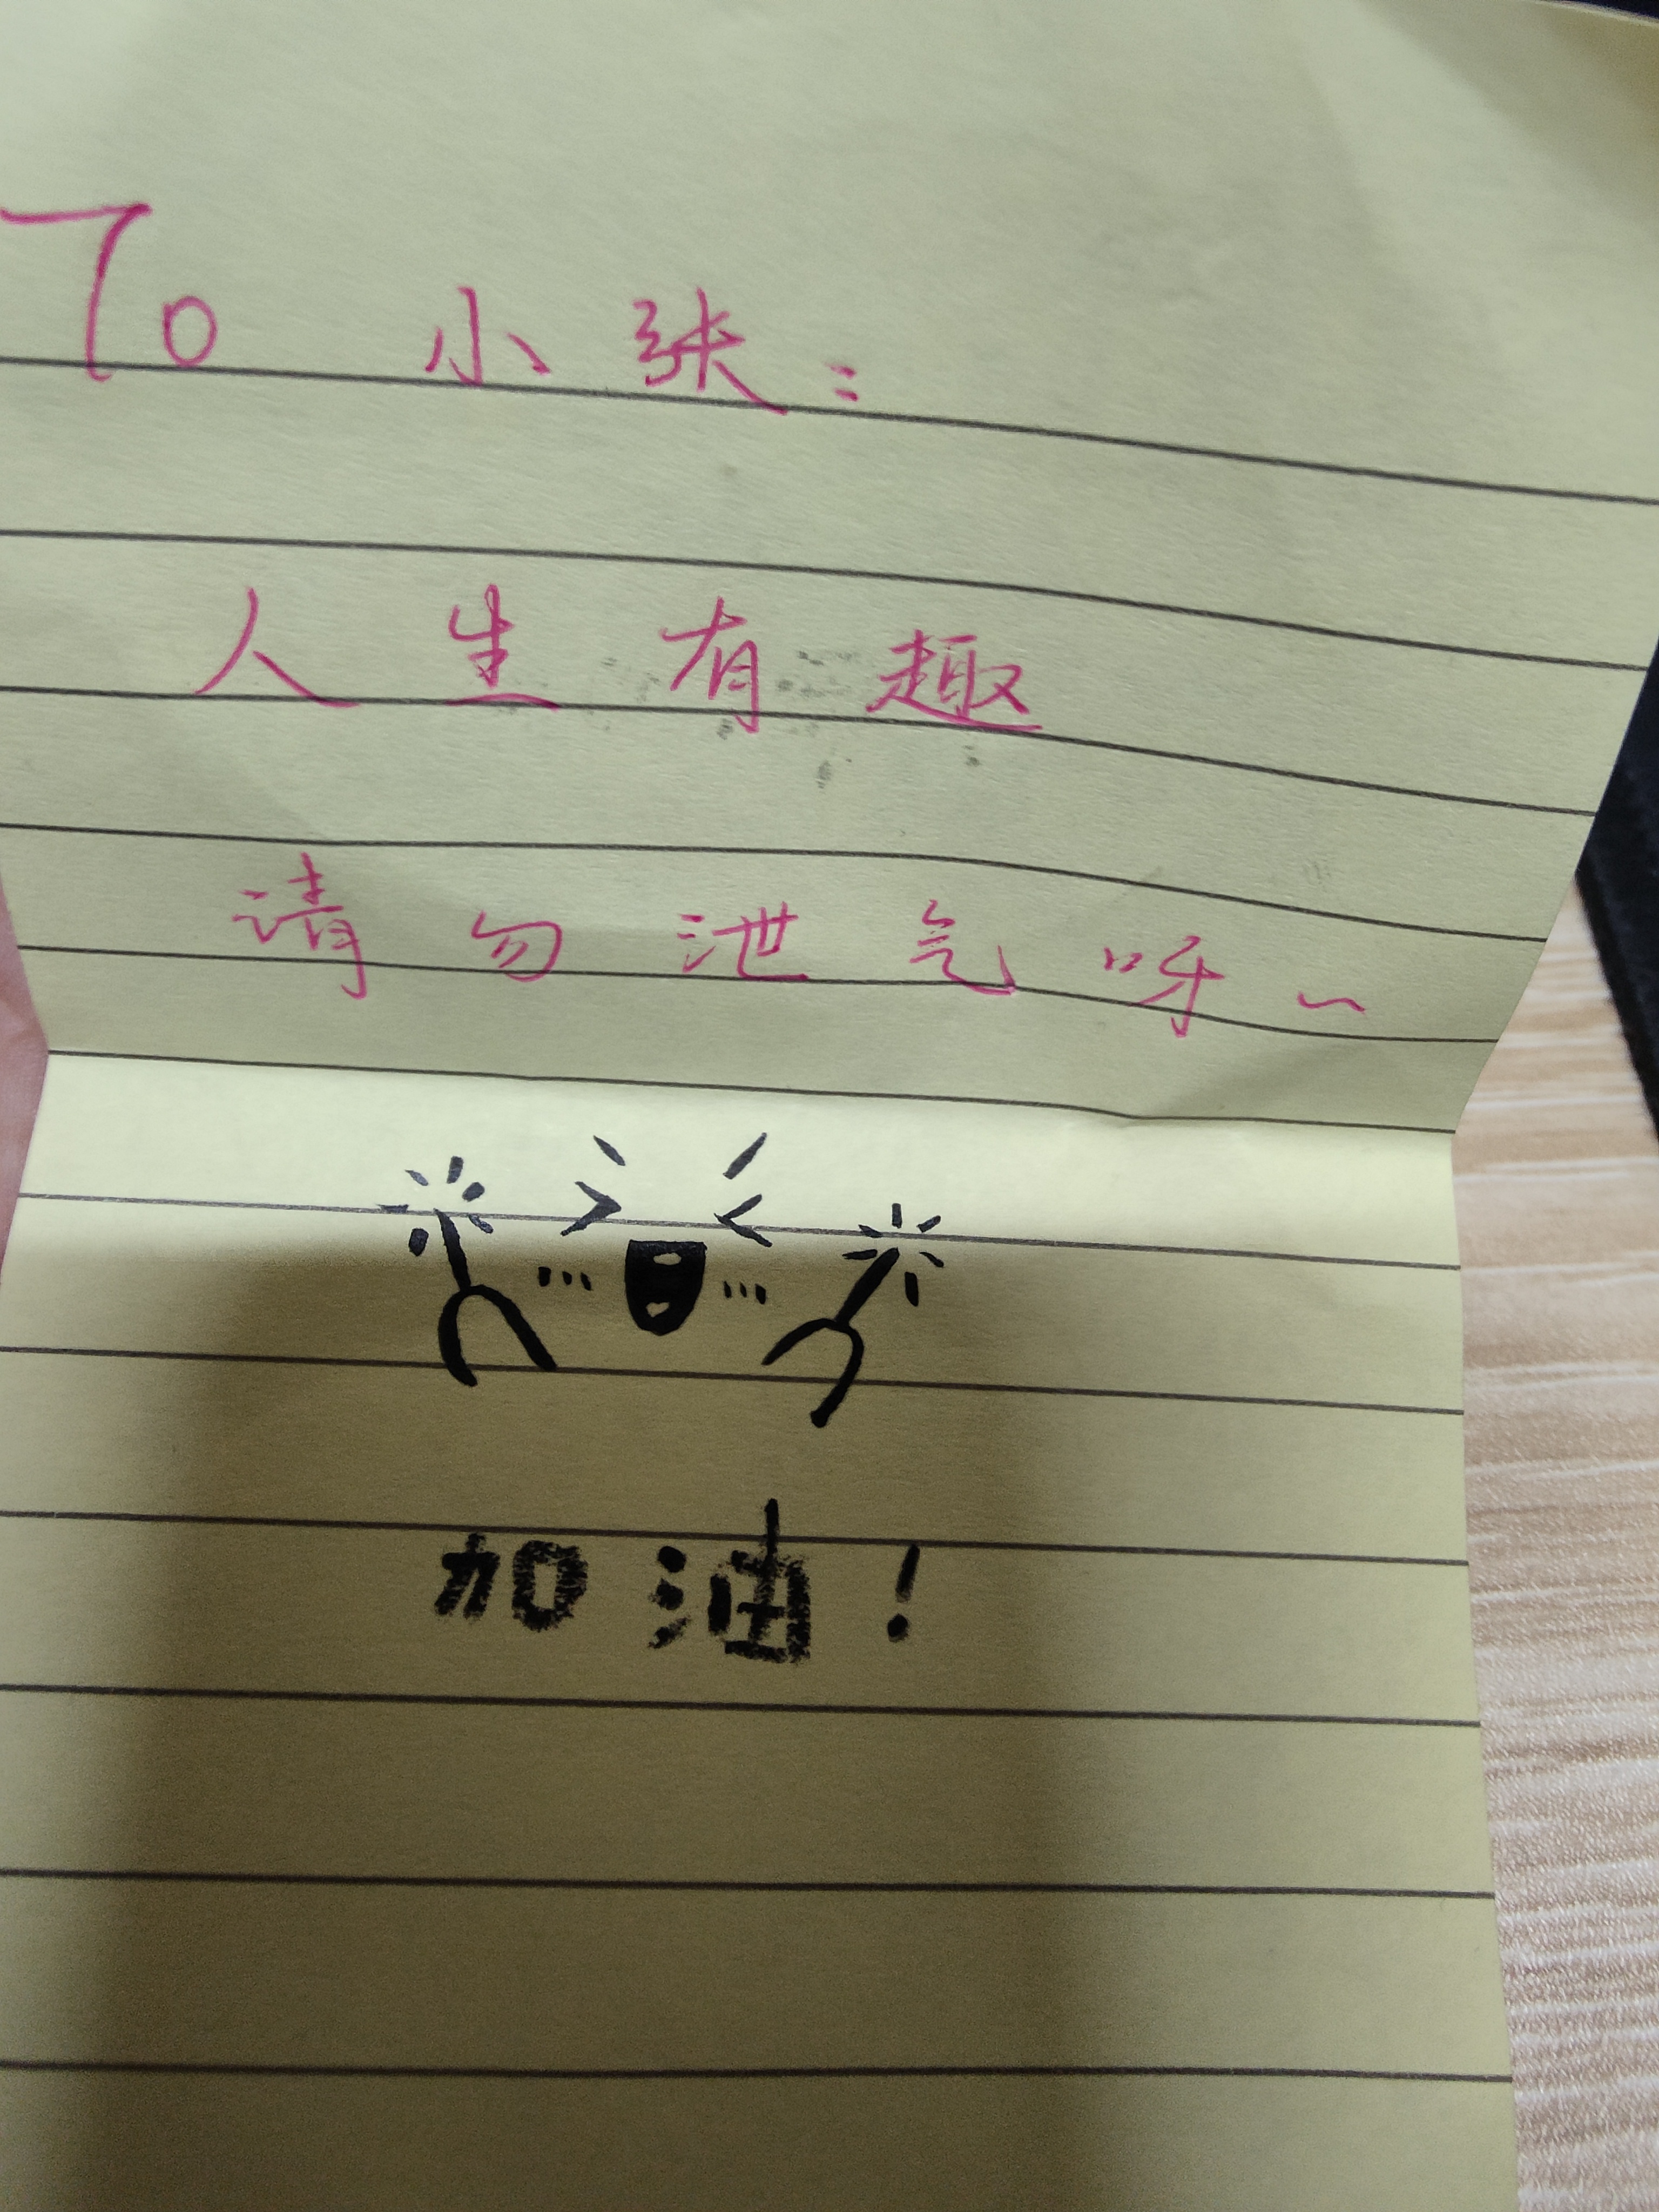 To 小张：
人生有趣
请勿泄气呀~
加油！